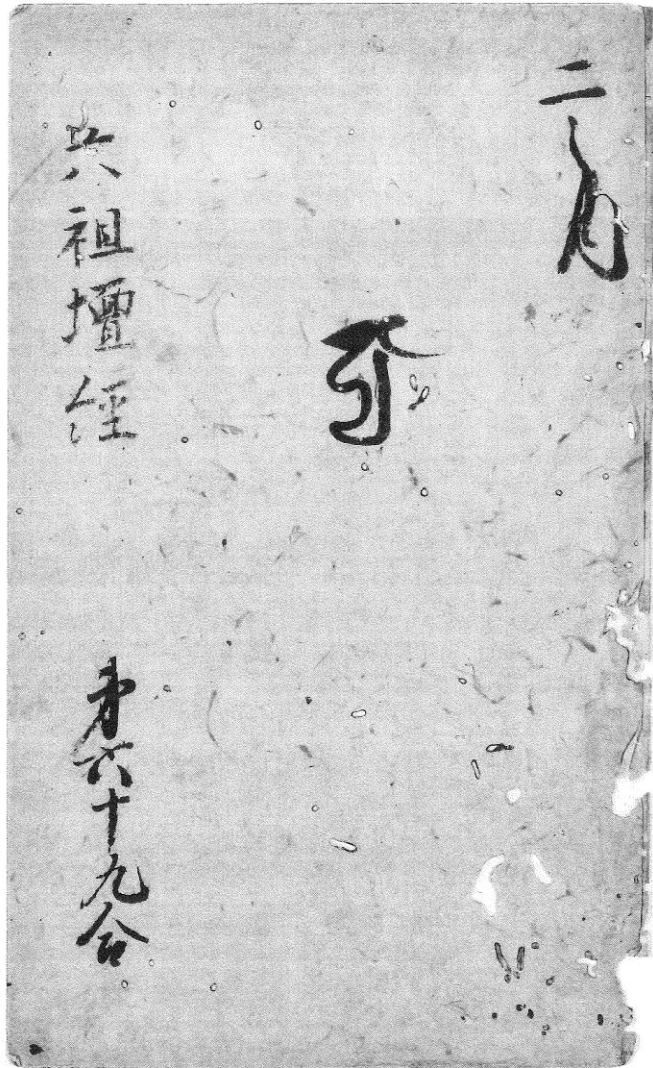 二
六祖壇經
第六十九合